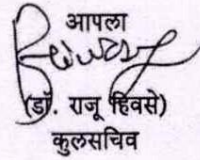 आपला
(डॉ. राजू हिवसे)
कुलसचिव